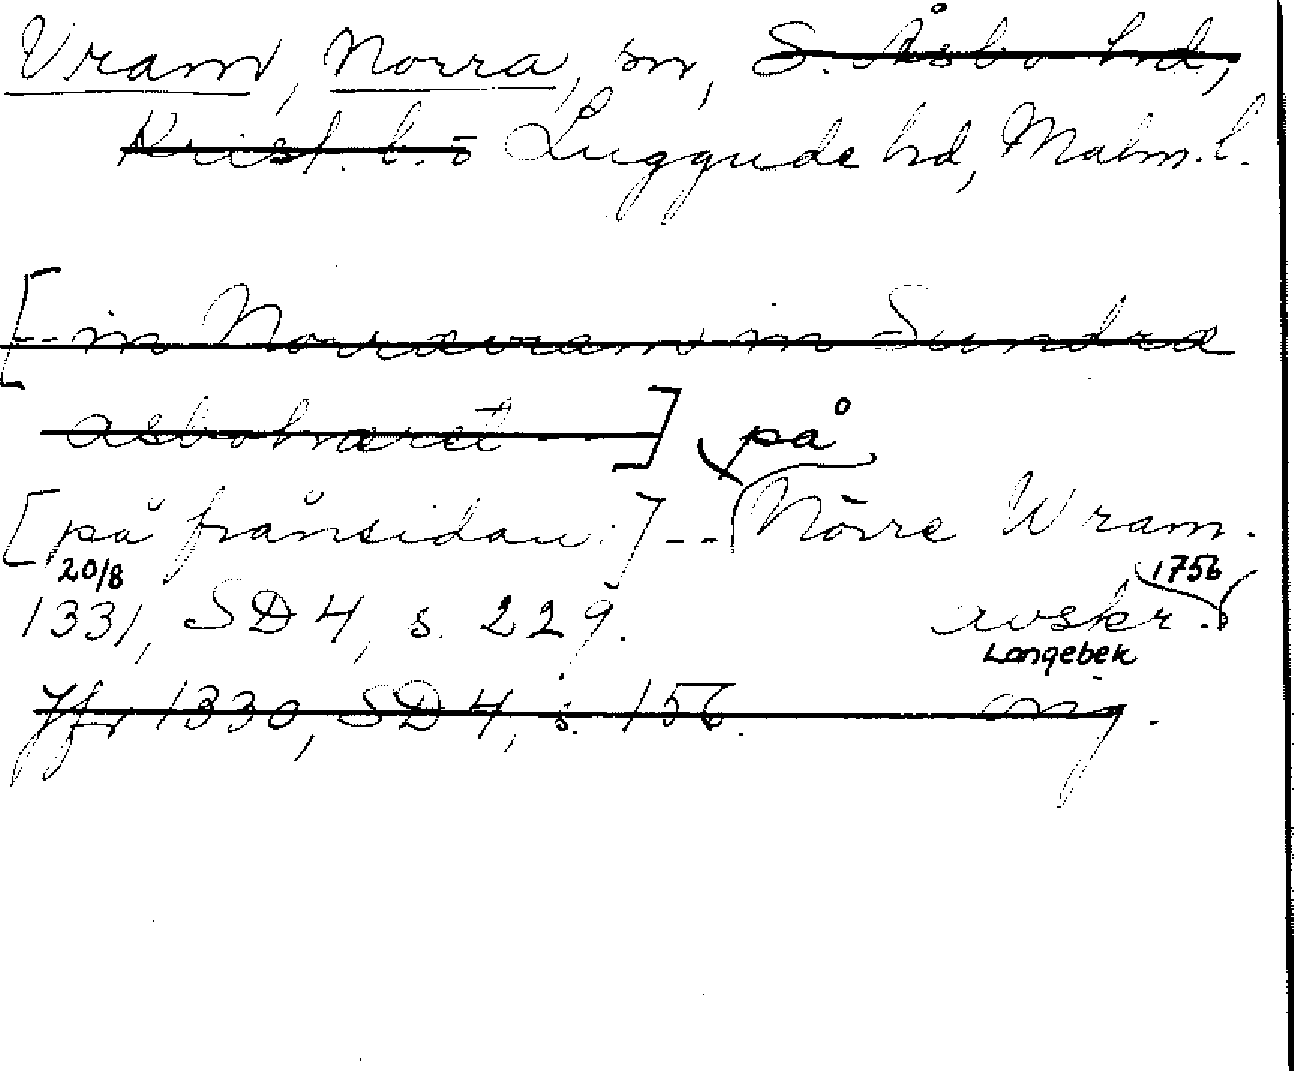 Vram, Norra, sn, S. Åsbo hd,
Krist. l. o Luggude hd, Malm. l.
[-- in Norræwram in Sundra
asbohæret --] på
[på frånsidan:] -- Nörre Wram.
20/8 1756
1331, SD 4, s. 229. avskr.
Langebek
Jfr 1330, SD 4, s. 156. orig.